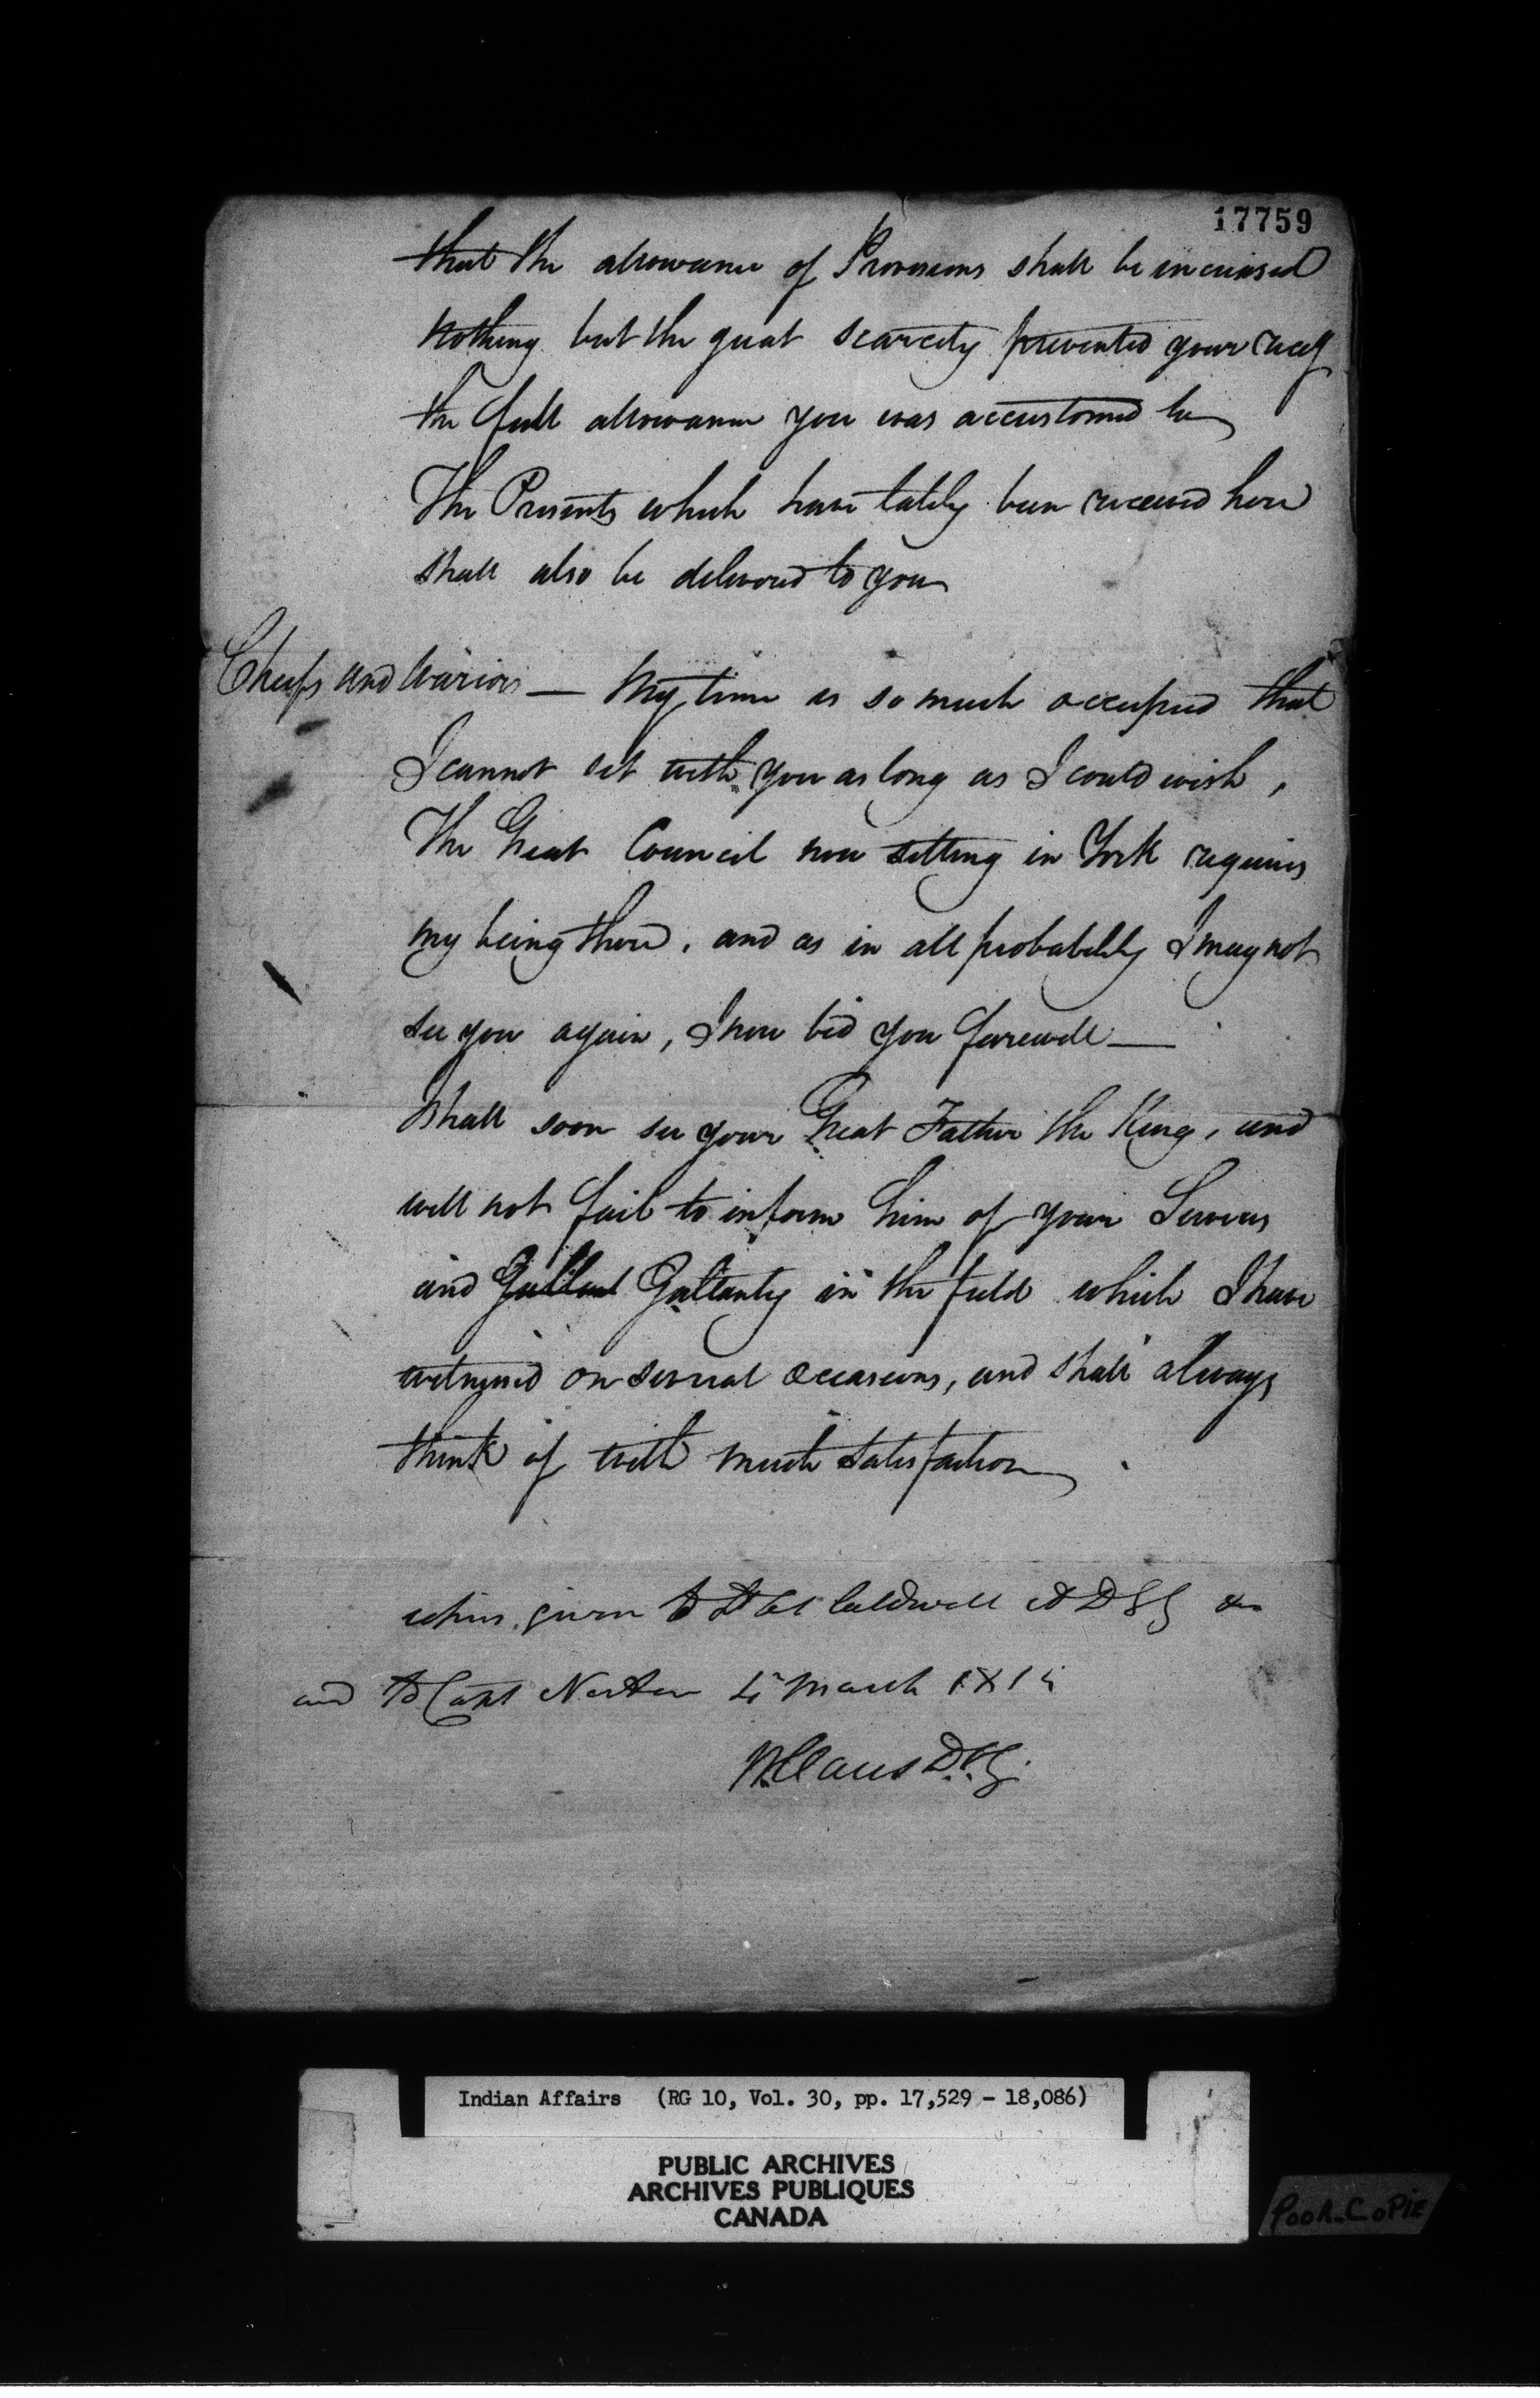 17759
that the allowance of Provisions shall be increased
nothing but the great scarcity prevented your recg
the full allowance you was accustomed to
The Presents which have lately been received here
shall also be delivered to you
Chiefs and Wariors — My time is so much occupied that
I cannot set with you as long as I could wish,
The Great Council now setting in York requires
my being there, and as in all probability I may not
see you again, I now bid you farewell —
Shall soon see your Great Father the King, and
will not fail to inform him of your Services
and Gallant Gallantry in the field which I have
witnessed on several occasions, and shall always
think of with much satisfaction
given to Lt Col Caldwell DSG &c
and to Capt Norton 4 March 181
WClaus D.S.G.
Indian Affairs (RG 10, Vol. 30, pp. 17,529 - 18,086)
PUBLIC ARCHIVES
ARCHIVES PUBLIQUES
CANADA
POOR COPIE